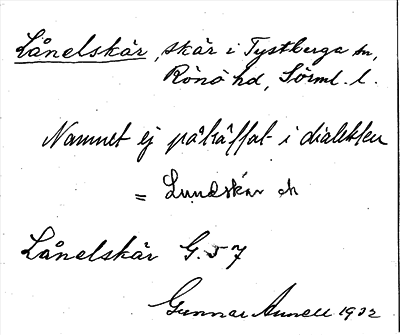 Lånelskär, skär i Tystberga sn,
Rönö hd, Sörml. l.
Namnet ej påträffat i dialekten
= Lundskär
Lånelskär G. 57
Gunnar 1932